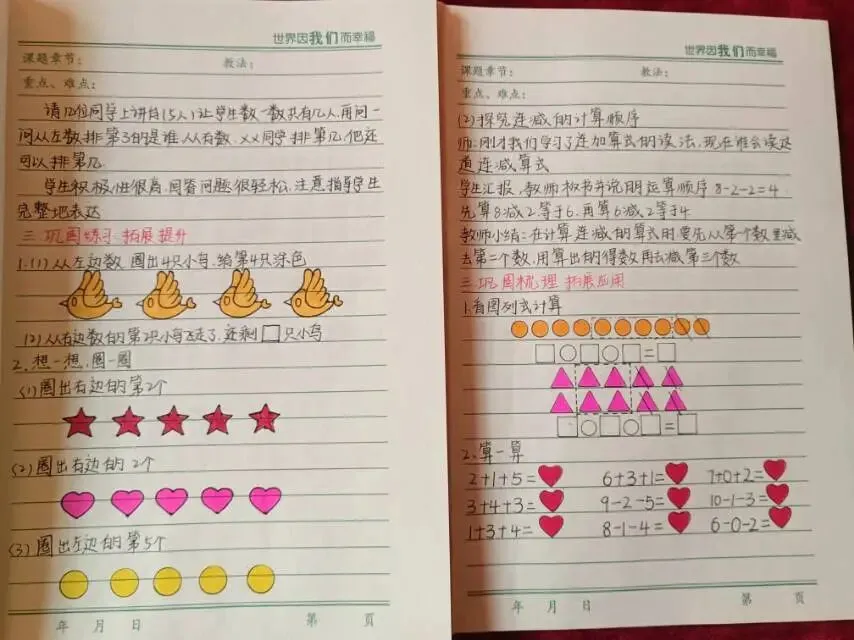 世界因我们而幸福
课题章节： 教法：
重点、难点：
请几位同学上讲台(5人)让学生数一数共有几人，再问一
问从左数排第3的是谁，从右数，××同学排第几，他还
可以排第几.
学生积极性很高，回答问题很轻松，注意指导学生
完整地表达
三.巩固练习 拓展提升
1.(1)从左边数，圈出4只小鸟，给第4只涂色
(2)从右边数的第2只小鸟飞走了，还剩□只小鸟
2、想一想，圈一圈
(1)圈出右边的第2个
(2)圈出右边的2个
(3)圈出左边的第5个
年 月 日 第 页
世界因我们而幸福
课题章节： 教法：
重点、难点：
(2)探究连减的计算顺序
师：刚才我们学习了连加算式的读法，现在谁会读这
道连减算式
学生汇报，教师板书并说明运算顺序8-2-2=4
先算8减2等于6，再算6减2等于4
教师小结：在计算连减的算式时要先从第一个数里减
去第二个数，用算出的得数再去减第三个数
三.巩固梳理 拓展应用
1.看图列式计算
□○□○□=□
□○□○□=□
2、算一算
2+1+5= 6+3+1= 7+0+2=
3+4+3= 9-2-5= 10-1-3=
1+3+4= 8-1-4= 6-0-2=
年 月 日 第 页